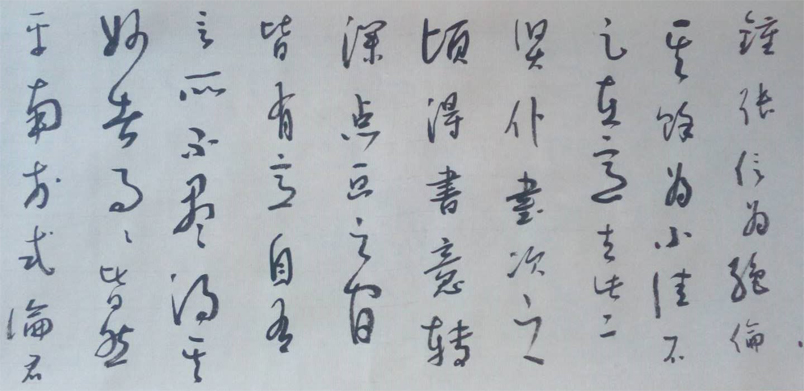 鍾張信為絕倫
其餘為小佳不
足在意去此二
賢仆書次之
頃得書意轉
深点画之间
皆有意自有
言所不盡得其
妙者事々皆然
平南李式論君